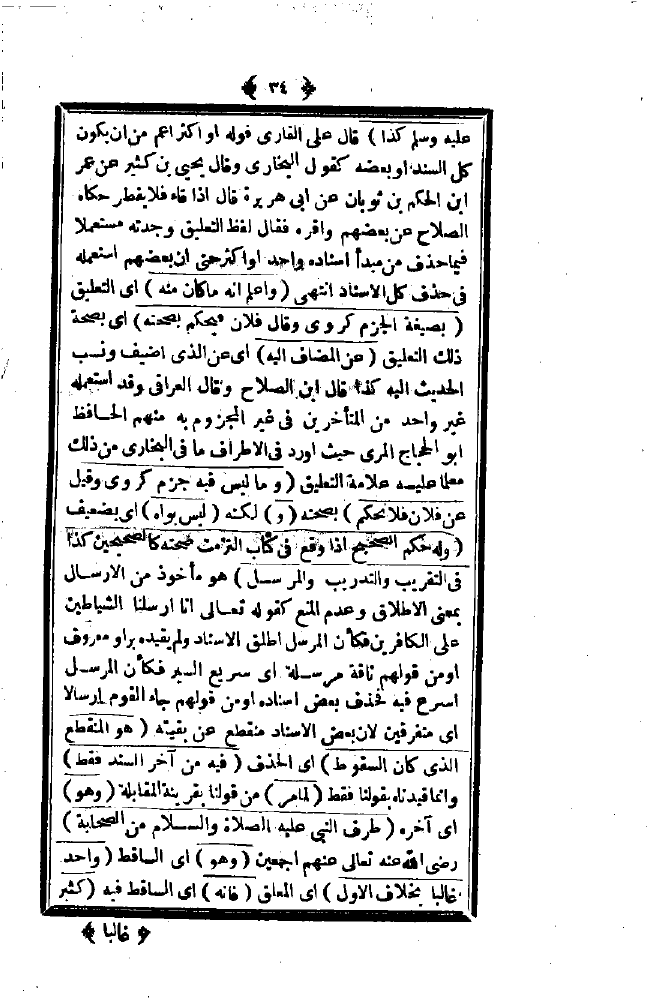 ﴿ ٣٤ ﴾
عليه وسلم كذا ) قال على القارى قوله او اكثر اعم من ان يكون
كل السند او بعضه كقول البخارى وقال يحيى بن كثير عن عمر
ابن الحكم بن ثوبان عن ابى هريرة قال اذا قاء فلا يفطر حكاه
الصلاح عن بعضهم واقره فقال لفظ التعليق وجدته مستعملا
فيما حذف من مبدأ اسناده واحد او اكثر حتى ان بعضهم استعمله
فى حذف كل الاسناد انتهى ( واعلم انه ماكان منه ) اى التعليق
( بصيغة الجزم كروى وقال فلان فيحكم بصحته ) اى بصحة
ذلك التعليق ( عن المضاف اليه ) اى عن الذى اضيف ونسب
الحديث اليه كذا قال ابن الصلاح وقال العراقى وقد استعمله
غير واحد من المتأخرين فى غير المجزوم به منهم الحافظ
ابو الحجاج المزى حيث اورد فى الاطراف ما فى البخارى من ذلك
معلما عليه علامة التعليق ( وما ليس فيه جزم كروى وقيل
عن فلان فلا يحكم ) بصحته ( و ) لكنه ( ليس بواه ) اى بضعيف
( وله حكم الصحيح اذا وقع فى كتاب التزمت صحته كالصحيحين كذا
فى التقريب والتدريب والمرسل ) هو مأخوذ من الارسال
بمعنى الاطلاق وعدم المنع كقوله تعالى انا ارسلنا الشياطين
على الكافرين فكأن المرسل اطلق الاسناد ولم يقيده براو معروف
او من قولهم ناقة مرسلة اى سريع السير فكأن المرسل
اسرع فيه فحذف بعض اسناده او من قولهم جاء القوم ارسالا
اى متفرقين لان بعض الاسناد منقطع عن بقيته ( هو المنقطع
الذى كان السقوط ) اى الحذف ( فيه من آخر السند فقط )
وانما قيدناه بقولنا فقط ( لمامر ) من قولنا بقرينة المقابلة ( وهو )
اى آخره ( طرف النبي عليه الصلاة والسلام من الصحابة )
رضى الله عنه تعالى عنهم اجمعين ( وهو ) اى الساقط ( واحد
غالبا بخلاف الاول ) اى المعلق ( فانه ) اى الساقط فيه ( كثير
﴿ غالبا ﴾